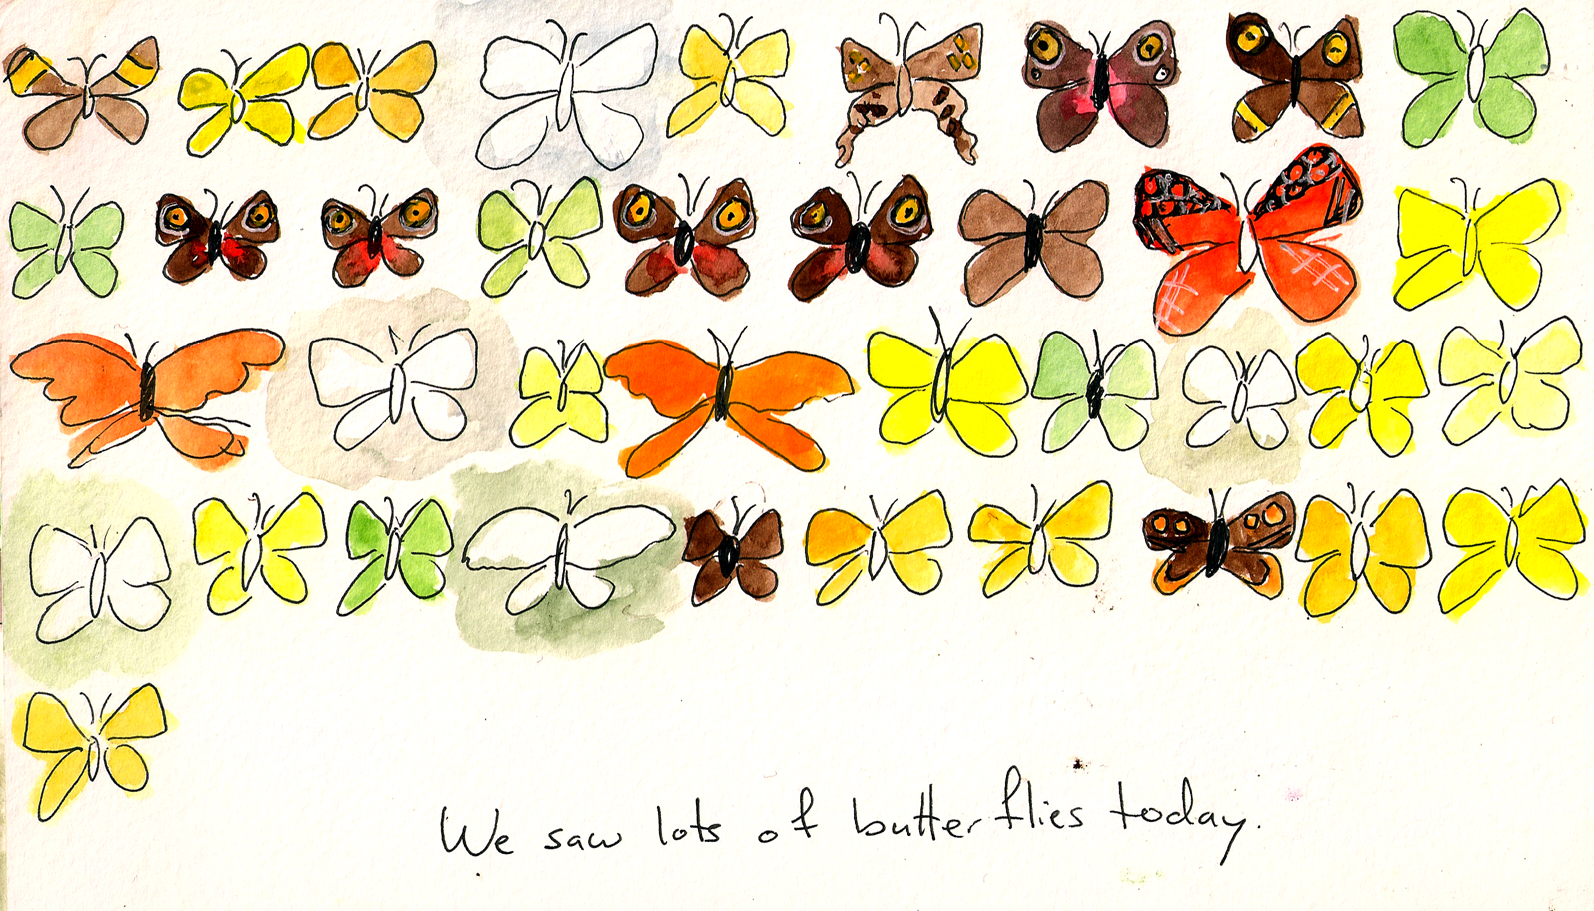 We saw lots of butterflies today.